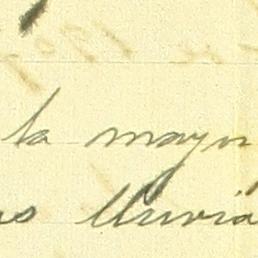 la mayu
as lluvia